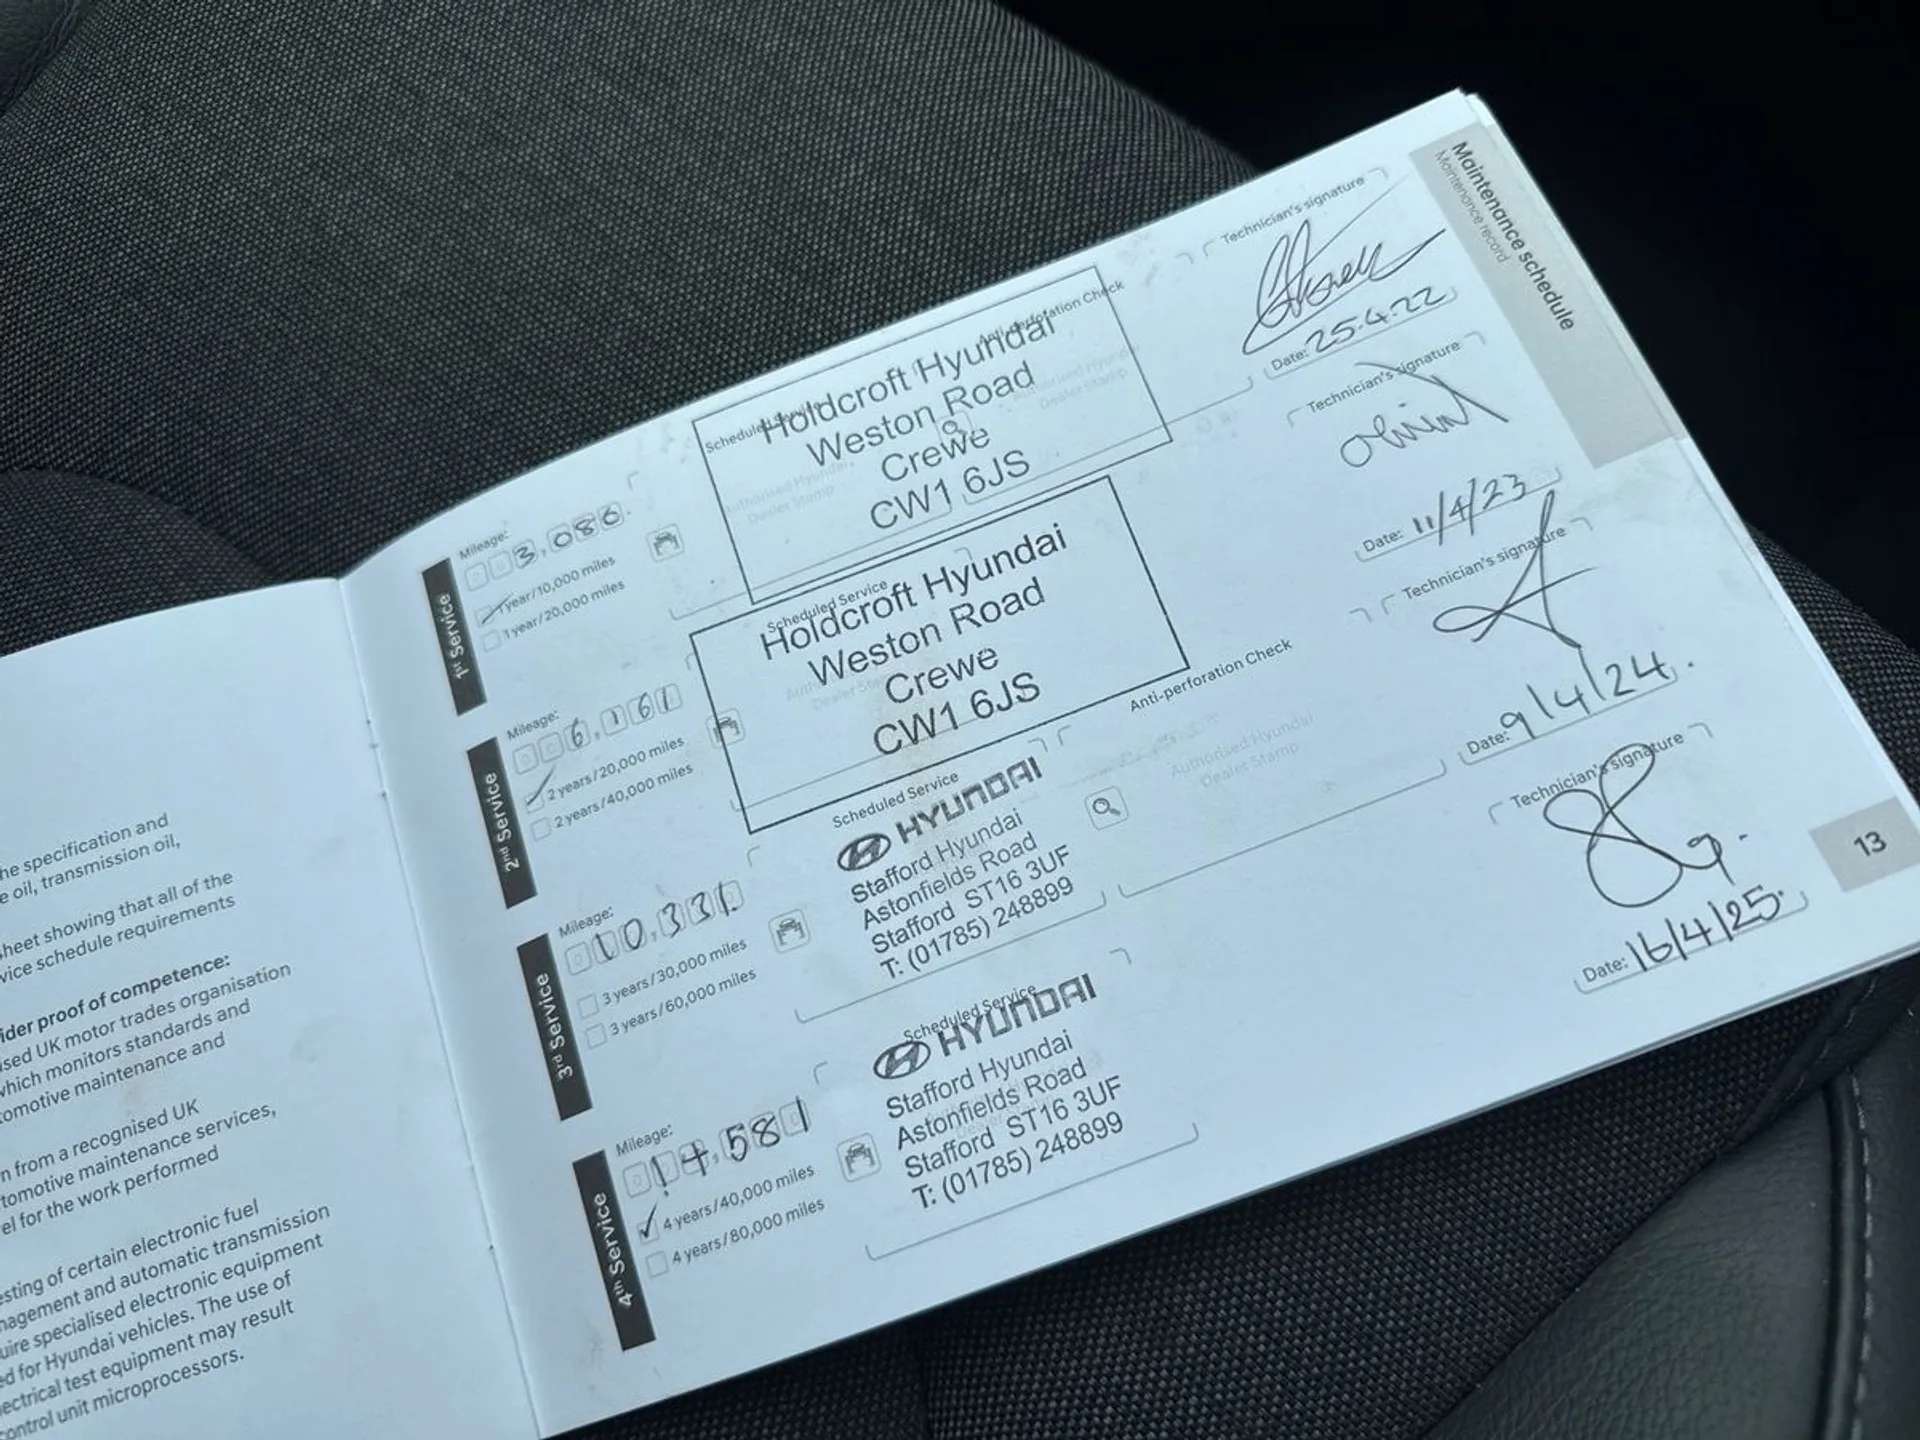 he specification and
e oil, transmission oil,
heet showing that all of the
vice schedule requirements
ider proof of competence:
ised UK motor trades organisation
which monitors standards and
tomotive maintenance and
n from a recognised UK
tomotive maintenance services,
el for the work performed
esting of certain electronic fuel
nagement and automatic transmission
uire specialised electronic equipment
ed for Hyundai vehicles. The use of
lectrical test equipment may result
control unit microprocessors.
Maintenance schedule
Maintenance record
1st Service
Mileage:
3,086.
1 year/10,000 miles
1 year/20,000 miles
Scheduled Service
Anti-perforation Check
Authorised Hyundai
Dealer Stamp
Authorised Hyundai
Dealer Stamp
Holdcroft Hyundai
Weston Road
Crewe
CW1 6JS
Technician's signature
Date: 25.4.22
2nd Service
Mileage:
6,161
2 years/20,000 miles
2 years/40,000 miles
Scheduled Service
Holdcroft Hyundai
Weston Road
Crewe
CW1 6JS
Technician's signature
Date: 11/4/23
3rd Service
Mileage:
10,331
3 years/30,000 miles
3 years/60,000 miles
Scheduled Service
HYUNDAI
Stafford Hyundai
Astonfields Road
Stafford ST16 3UF
T: (01785) 248899
Anti-perforation Check
Authorised Hyundai
Dealer Stamp
Technician's signature
Date: 9/4/24.
4th Service
Mileage:
14,581
4 years/40,000 miles
4 years/80,000 miles
Scheduled Service
HYUNDAI
Stafford Hyundai
Astonfields Road
Stafford ST16 3UF
T: (01785) 248899
Technician's signature
Date: 16/4/25.
13